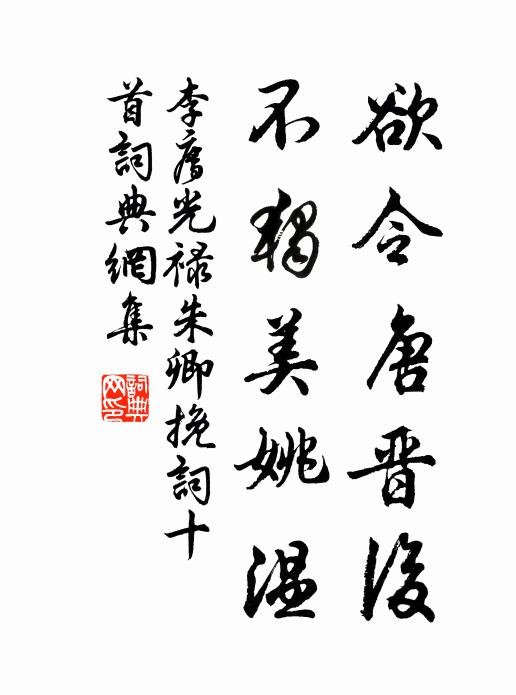 欲令唐晋後
不獨美姚温
李光禄朱卿挽詞十
首詞典網集
詞典
网印